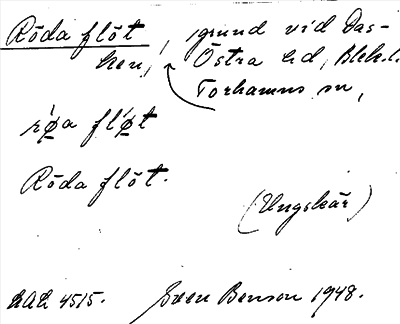 Röda flöt, grund vid Das-
ken, Östra hd, Blek.l.
Torhamns sn,
rø̄́a flø̄́t
Röda flöt.
(Ungskär)
LAL 4515. Sven Benson 1948.